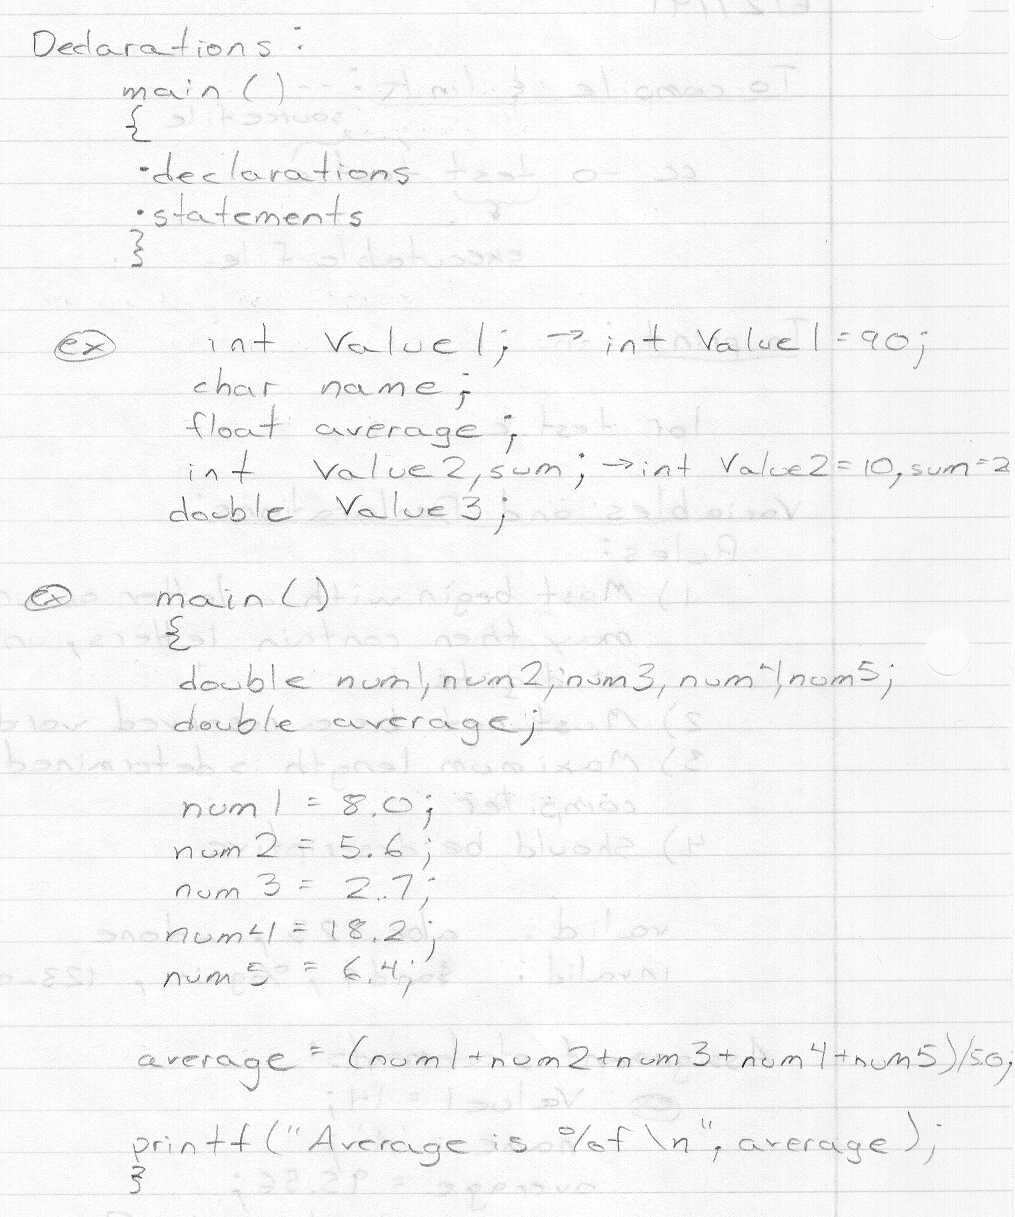 Declarations:
main ()
{
·declarations
·statements
}
ex int Value1; → int Value1 = 90;
char name;
float average;
int Value2, sum; → int Value2 = 10, sum = 2
double Value3;
ex main ()
{
double num1, num2, num3, num4, num5;
double average;
num1 = 8.0;
num2 = 5.6;
num3 = 2.7;
num4 = 18.2;
num5 = 6.4;
average = (num1+num2+num3+num4+num5)/5.0;
printf ("Average is %f \n", average);
}